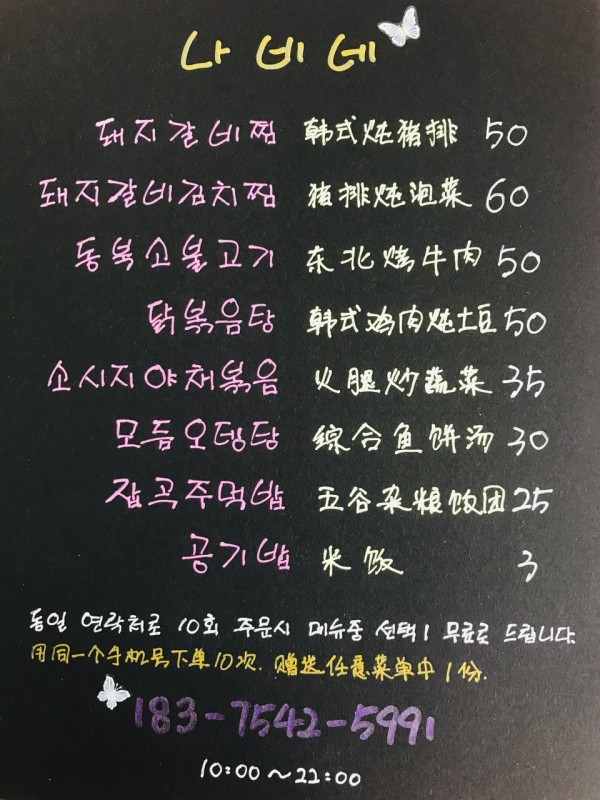 나비네
돼지갈비찜 韩式炖猪排 50
돼지갈비김치찜 猪排炖泡菜 60
동북소불고기 东北烤牛肉 50
닭볶음탕 韩式鸡肉炖土豆 50
소시지야채볶음 火腿炒蔬菜 35
모듬오뎅탕 综合鱼饼汤 30
잡곡주먹밥 五谷杂粮饭团 25
공기밥 米饭 3
동일 연락처로 10회 주문시 메뉴중 선택1 무료로 드립니다
用同一个手机号下单10次. 赠送任意菜单中1份.
183-7542-5991
10:00~22:00